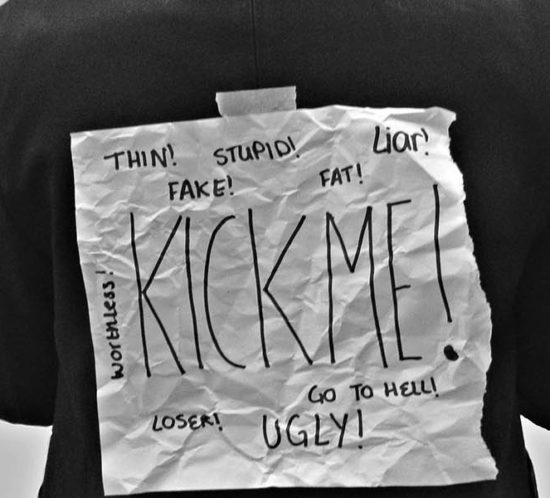 THIN! STUPID! Liar!
FAKE! FAT!
KICK ME!
worthless!
GO TO HELL!
LOSER! UGLY!